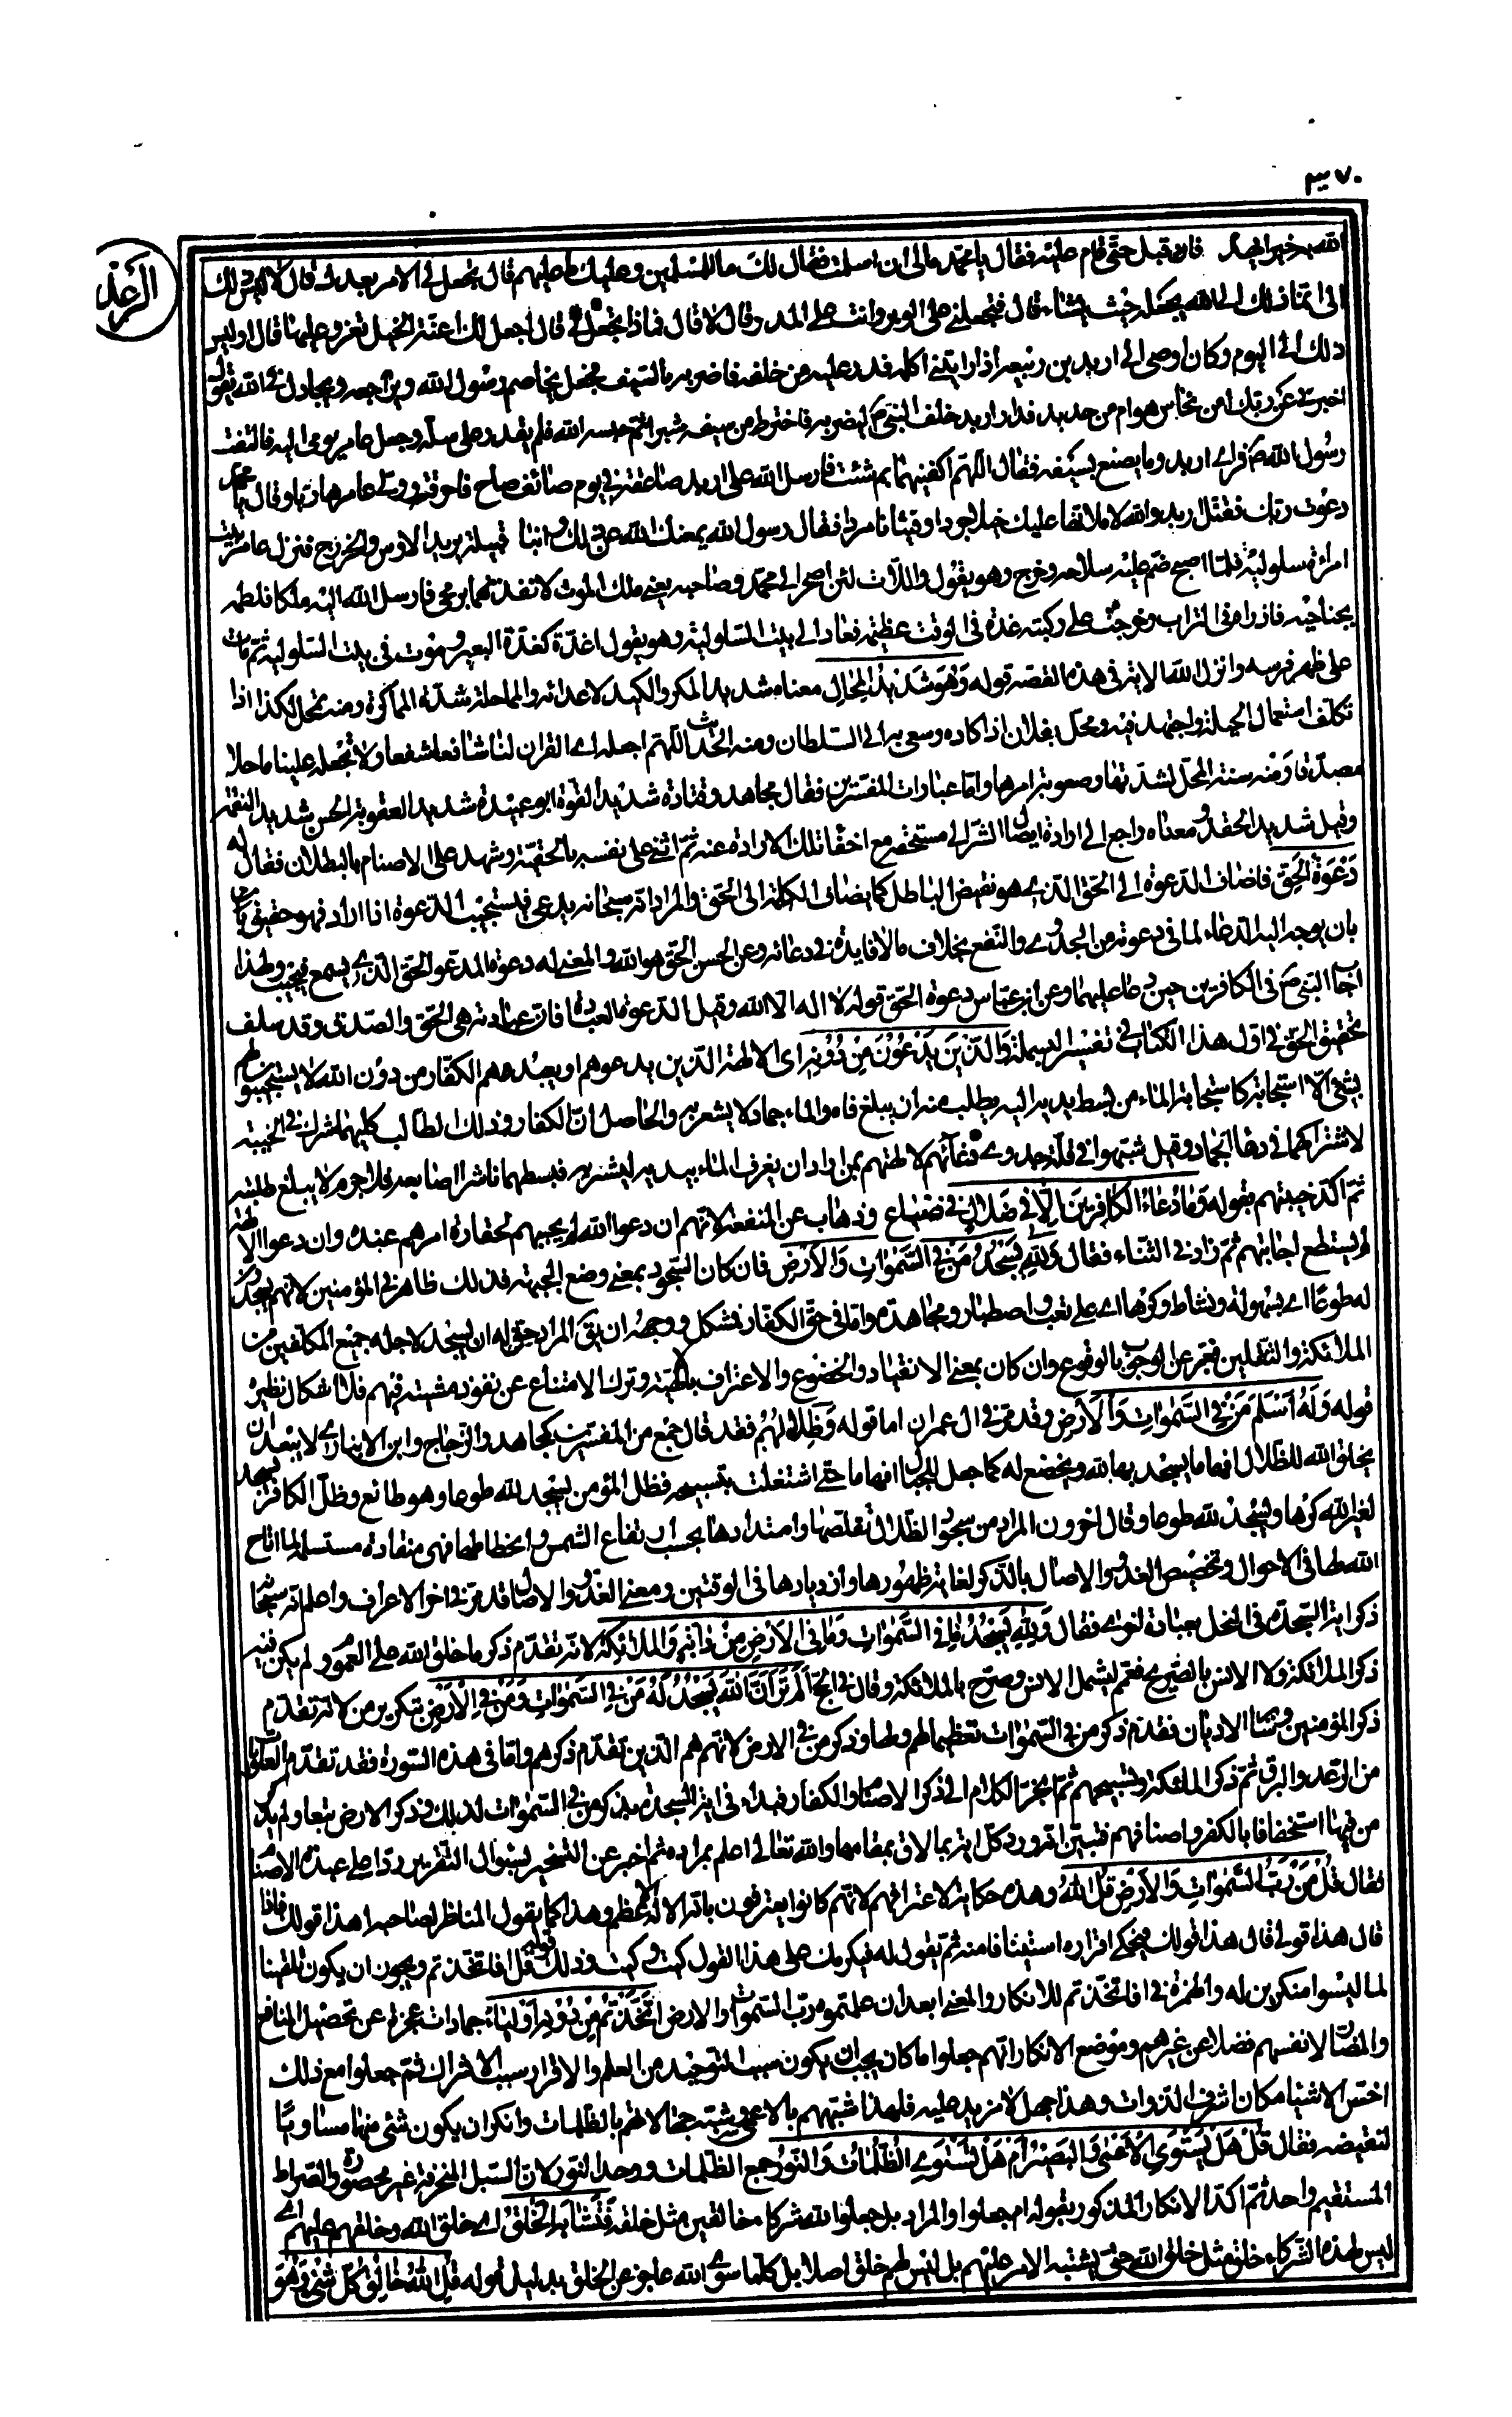 ٣٧٠
الرعد
الله به خيرا يهده فاقبل حتى قام عليه فقال يا محمد مالى ان اسلمت فقال لك ما للمسلمين وعليك ما عليهم قال تجعل لى الامر بعدك قال لا ليس ذلك
الى انما ذلك الى الله يجعله حيث يشاء قال فتجعلنى على الوبر وانت على المدر قال لا قال فماذا تجعل لى قال اجعل لك اعنة الخيل تغزو عليها قال اوليس
ذلك الى اليوم وكان اوصى الى اربد بن ربيعة اذا رايتنى اكلمه فدر عليه من خلفه فاضربه بالسيف فجعل يخاصم رسول الله ويراجعه ويجادل فى الله يقول
اخبرنى عن ربك امن نحاس هو ام من حديد فدار اربد خلف النبى ص ليضربه فاخترط من سيفه شبرا ثم حبسه الله فلم يقدر على سله وجعل عامر يومى اليه فالتفت
رسول الله ص فراى اربد وما يصنع بسيفه فقال اللهم اكفنيهما بم شئت فارسل الله على اربد صاعقة فى يوم صائف صاح فاحرقته وولى عامر هاربا وقال يا محمد
دعوت ربك فقتل اربد والله لاملانها عليك خيلا جردا وفتيانا مردا فقال رسول الله يمنعك الله عن ذلك وابنا قيلة يريد الاوس والخزرج فنزل عامر بيت
امراة سلولية فلما اصبح ضم عليه سلاحه وخرج وهو يقول واللات لئن اصحر الى محمد وصاحبه يعنى ملك الموت لانفذتهما برمحى فارسل الله اليه ملكا فلطمه
بجناحيه فاذراه فى التراب وخرجت على ركبته غدة فى الوقت عظيمة فعاد الى بيت السلولية وهو يقول اغدة كغدة البعير وموت فى بيت السلولية ثم مات
على ظهر فرسه وانزل الله الاية فى هذه القصة قوله وَهُوَ شَدِيدُ الْمِحَالِ معناه شديد المكر والكيد لاعدائه والمماحلة شدة المماكرة ومنه تمحل لكذا اذا
تكلف استعمال الحيلة واجتهد فيه ومحل بفلان اذا كاده وسعى به الى السلطان ومنه الحديث اللهم اجعله اى القران لنا شافعا مشفعا ولا تجعله علينا ماحلا
مصدقا ومنه سنة المحل لشدتها وصعوبة امرها واما عبارات المفسرين فقال مجاهد وقتادة شديد القوة ابو عبيدة شديد العقوبة الحسن شديد النقمة
وقيل شديد الحقد ومعناه راجع الى ارادة ايصال الشر الى مستحقه مع اخفا تلك الارادة عنه ثم اثنى على نفسه بالحقية وشهد على الاصنام بالبطلان فقال له
دَعْوَةُ الْحَقِّ فاضاف الدعوة الى الحق الذى هو نقيض الباطل كما يضاف الكلمة الى الحق والمراد انه سبحانه يدعى فيستجيب الدعوة اذا اراد فهو حقيق
بان يوجه اليه الدعاء لما فى دعوته من الجدوى والنفع بخلاف مالا فايدة فى دعائه وعن الحسن الحق هو الله والمعنى له دعوة المدعو الحق الذى يسمع فيجيب ولهذا
اجاب النبى ص فى الكافرين حين دعا عليهما وعن ابن عباس دعوة الحق قوله لا اله الا الله وقيل الدعوة العبادة فان عبادته هى الحق والصدق وقد سلف
تحقيق الحق فى اول هذا الكتاب فى تفسير البسملة وَالَّذِينَ يَدْعُونَ مِنْ دُونِهِ اى الالهة الذين يدعوهم او يعبدهم الكفار من دون الله لا يستجيبون لهم
بشئ الا استجابة كاستجابة الماء من بسط يديه اليه يطلب منه ان يبلغ فاه والماء جماد لا يشعر به والحاصل ان الكفار وذلك الطالب كليهما مشتركان فى الخيبة
لاشتراكهما فى دعا الجماد وقيل شبهوا فى قلة جدوى دعائهم لالهتهم بمن اراد ان يغرف الماء بيديه ليشربه فبسطهما ناشرا اصابعه فلا جرم لا يبلغ طلبته
ثم اكد خيبتهم بقوله وَمَا دُعَاءُ الْكَافِرِينَ إِلَّا فِي ضَلَالٍ فى ضياع وذهاب عن المنفعة لانهم ان دعوا الله لم يجبهم لحقارة امرهم عنده وان دعوا الالهة
لم يستطع اجابتهم ثم زاد فى الثناء فقال وَلِلَّهِ يَسْجُدُ مَنْ فِي السَّمٰوَاتِ وَالْأَرْضِ فان كان السجود بمعنى وضع الجبهة فذلك ظاهر فى المؤمنين لانهم يسجدون
له طوعا اى بسهولة ونشاط وكرها اى على تعب واصطبار ومجاهدة واما فى حق الكفار فمشكل ووجهه ان يق المراد حق له ان يسجد لاجله جميع المكلفين من
الملائكة والثقلين فعبر عن الوجوب بالوقوع وان كان بمعنى الانقياد والخضوع والاعتراف بالهيته وترك الامتناع عن نفوذ مشيته فيهم فلا اشكال نظيره
قوله وَلَهُ أَسْلَمَ مَنْ فِي السَّمٰوَاتِ وَالْأَرْضِ وقد مر فى ال عمران اما قوله وَظِلَالُهُمْ فقد قال جمع من المفسرين كمجاهد والزجاج وابن الانبارى لا يبعد ان
يخلق الله للظلال افهاما يسجد بها لله ويخضع له كما جعل للجبال افهاما حتى اشتغلت بتسبيحه فظل المؤمن يسجد لله طوعا وهو طائع وظل الكافر يسجد
لغير الله كرها ويسجد لله طوعا وقال اخرون المراد من سجود الظلال تقلصها وامتدادها بحسب ارتفاع الشمس وانحطاطها فهى منقادة مستسلمة لما اتاح
الله لها فى الاحوال وتخصيص الغدو والاصال بالذكر لغاية ظهورها وازديادها فى الوقتين ومعنى الغدو والاصال قد مر فى اخر الاعراف واعلم انه سبحانه
ذكر اية السجدة فى النحل بعبارة اخرى فقال وَلِلَّهِ يَسْجُدُ مَا فِي السَّمٰوَاتِ وَمَا فِي الْأَرْضِ مِنْ دَابَّةٍ وَالْمَلَائِكَةُ لانه تقدم ذكر ما خلق الله على العموم ولم يكن فيه
ذكر الملائكة ولا الانس بالصريح فعمم ليشمل الانس وصرح بالملائكة وقال فى الحج أَلَمْ تَرَ أَنَّ اللَّهَ يَسْجُدُ لَهُ مَنْ فِي السَّمٰوَاتِ وَمَنْ فِي الْأَرْضِ بتكرير من لانه تقدم
ذكر المؤمنين وسائر الاديان فقدم ذكر من فى السموات تعظيما لهم ولها وذكر من فى الارض لانهم هم الذين تقدم ذكرهم واما فى هذه السورة فقد تقدم العلويات
من الرعد والبرق ثم ذكر الملئكة وتسبيحهم ثم انجر الكلام الى ذكر الاصنام والكفار فبداء فى اية السجدة بذكر من فى السموات لذلك وذكر الارض تبعا ولم يذكر
من فيها استخفافا بالكفر واصنافهم فتبين انه ورد كل اية بما لاق بمقامها والله تعالى اعلم بمراده ثم اخبر عن التسخير بسؤال التقرير ردا على عبدة الاصنام
فقال قُلْ مَنْ رَبُّ السَّمٰوَاتِ وَالْأَرْضِ قُلِ اللَّهُ وهذه حكاية لاعترافهم لانهم كانوا يعترفون بانه الاله الاعظم وهذا كما يقول المناظر لصاحبه اهذا قولك فاذا
قال هذا قولى قال هذا قولك فيحكى اقراره استيناقا منه ثم يقول له فيلزمك على هذا القول كيت وكيت وذلك قوله قل افاتخذتم ويجوز ان يكون تلقينا
لما ليسوا منكرين له والهمزة فى افاتخذتم للانكار والمعنى ابعد ان علمتموه رب السموات والارض اتَّخَذْتُمْ مِنْ دُونِهِ أَوْلِيَاءَ جمادات عجزة عن تحصيل المنافع
والمضار لانفسهم فضلا عن غيرهم وموضع الانكار انهم جعلوا ما كان يجب ان يكون سبب التوحيد من العلم والاقرار سبب الاشراك ثم جعلوا مع ذلك
اخس الاشيا مكان اشرف الذوات وهذا جهل لا مزيد عليه فلهذا شبههم بالاعمى وشبه جهالاتهم بالظلمات وانكر ان يكون شئ منها مساويا
لنقيضه فقال قُلْ هَلْ يَسْتَوِي الْأَعْمَى وَالْبَصِيرُ أَمْ هَلْ تَسْتَوِي الظُّلُمَاتُ وَالنُّورُ جمع الظلمات ووحد النور لان السبل المنحرفة غير محصورة والصراط
المستقيم واحد ثم اكد الانكار المذكور بقوله ام جعلوا والمراد بل جعلوا لله شركا خالقين مثل خلقه فَتَشَابَهَ الْخَلْقُ اى خلق الله وخلقهم عليهم اى
ليس لهذه الشركاء خلق مثل خلق الله حتى يشتبه الامر عليهم بل ليس لهم خلق اصلا بل كلما سوى الله عاجز عن الخلق بدليل قوله قُلِ اللَّهُ خَالِقُ كُلِّ شَيْءٍ وَهُوَ